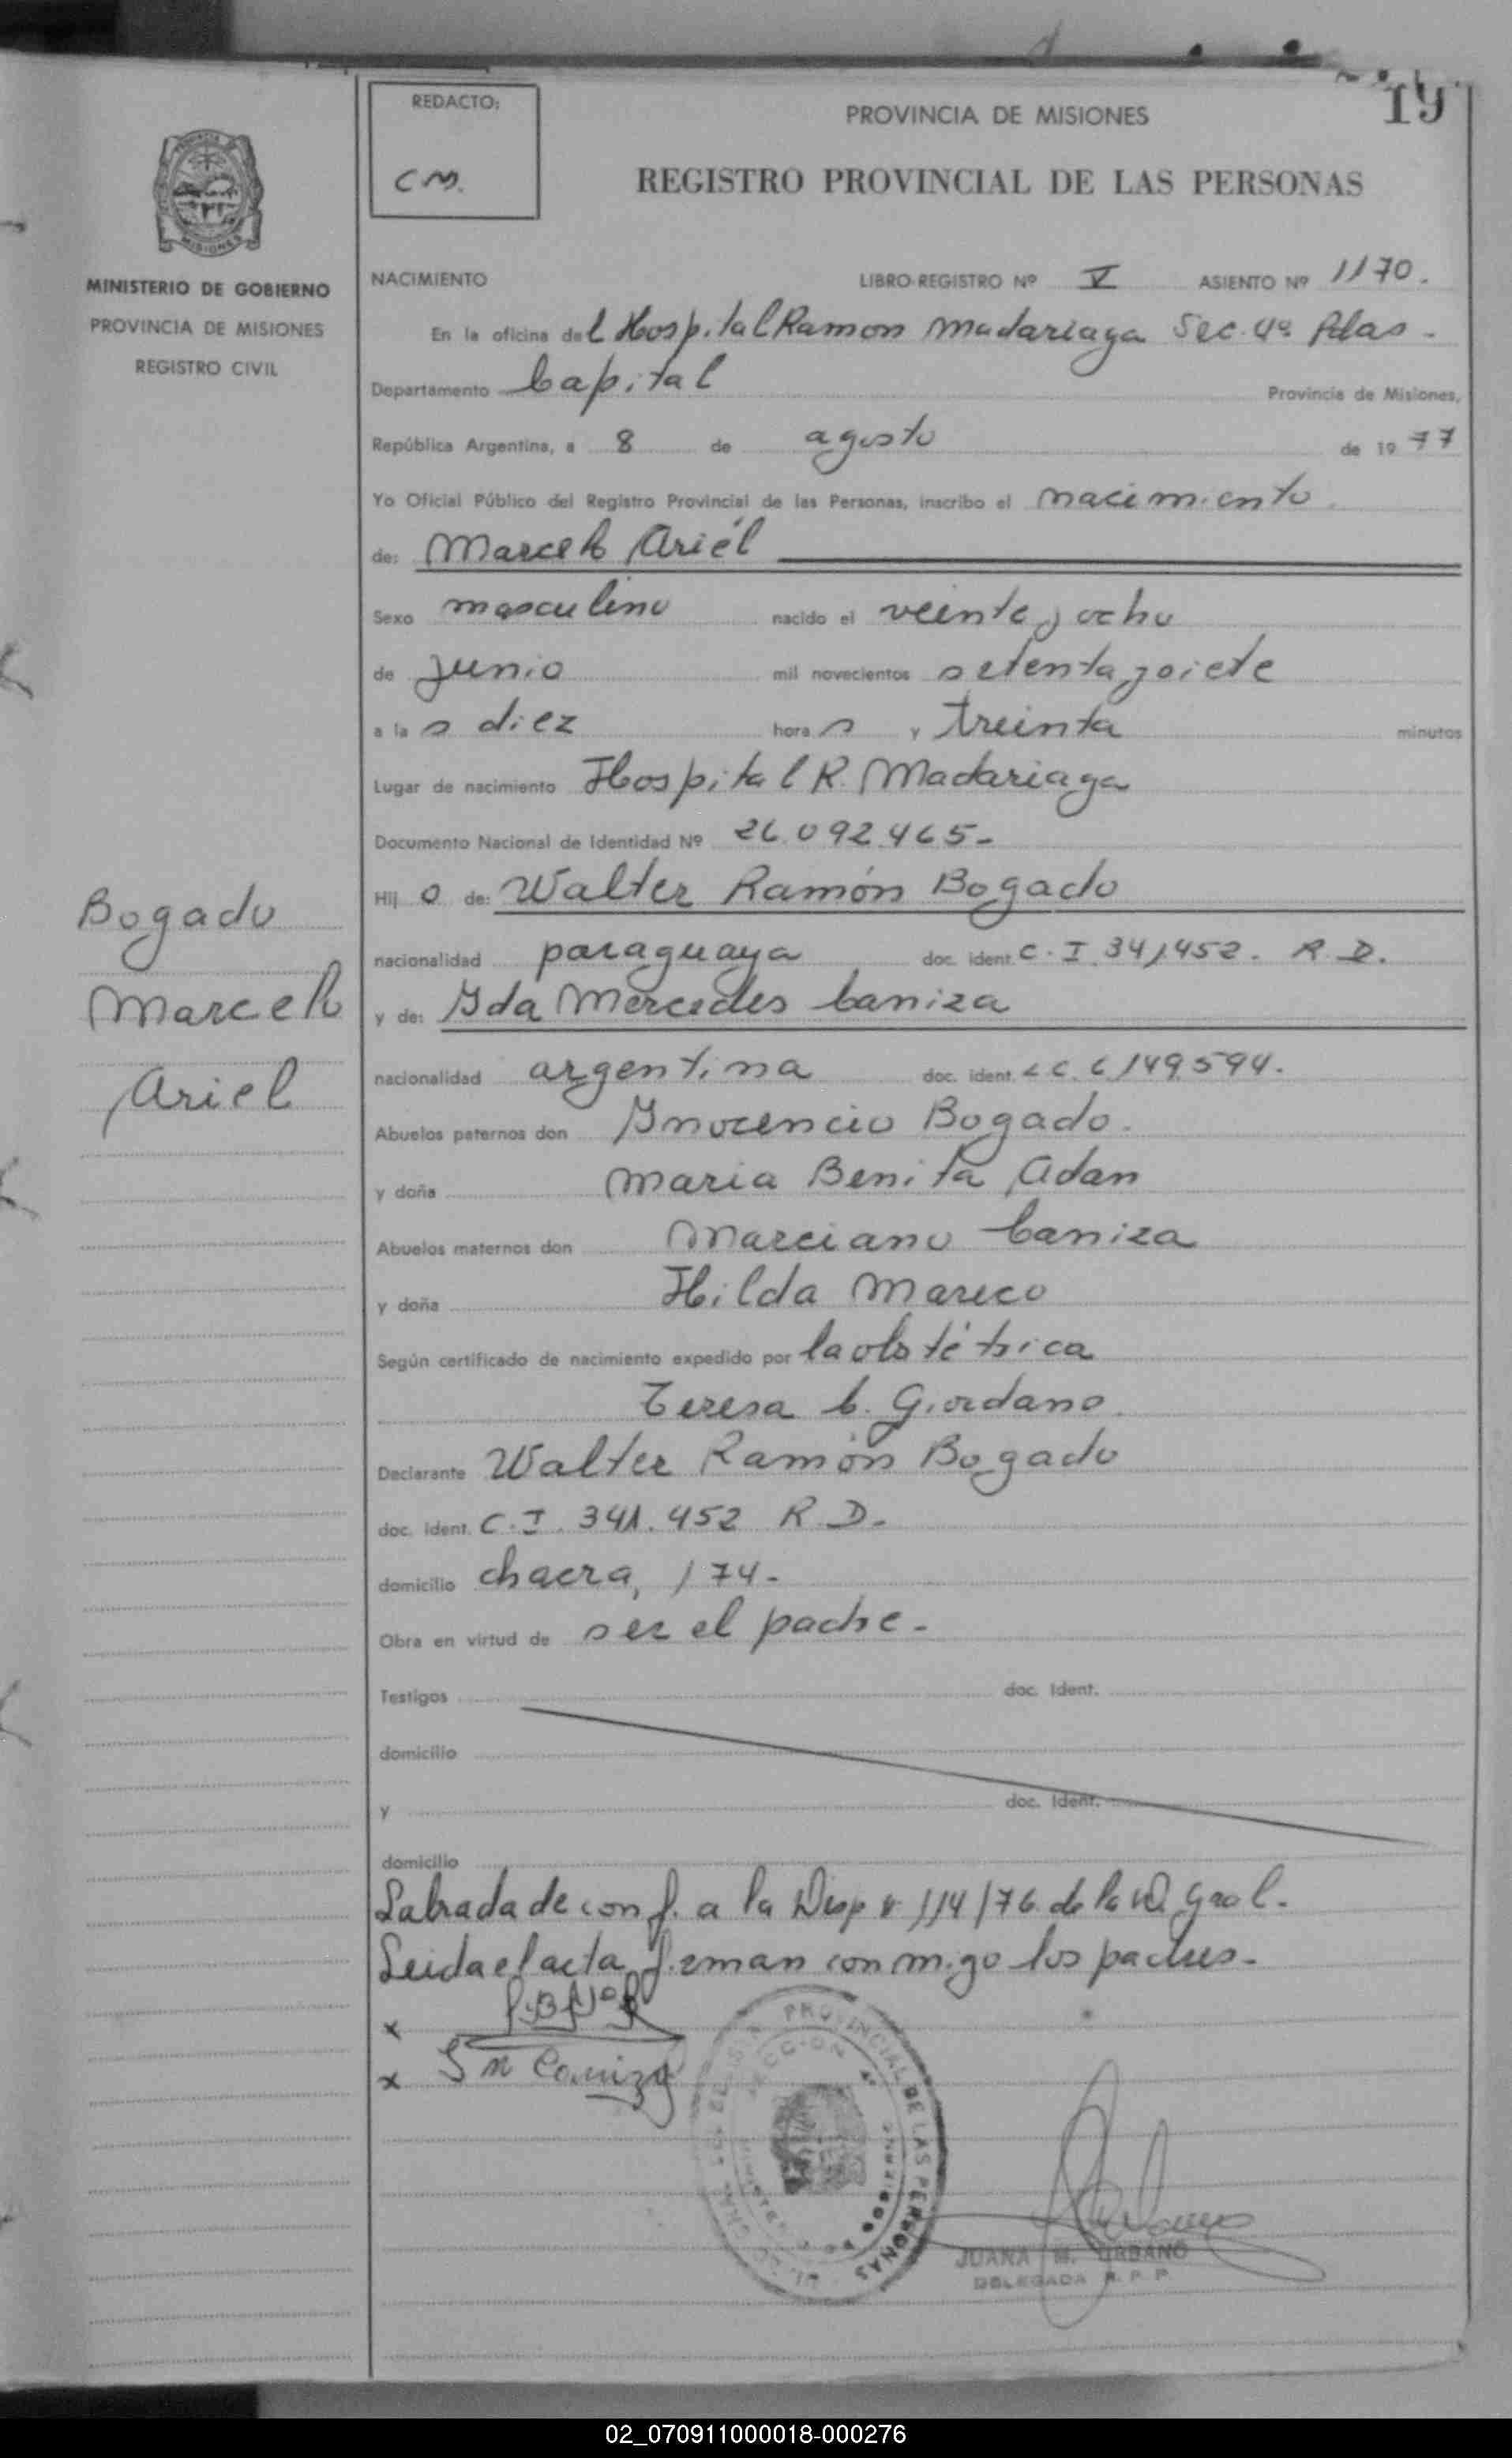 19
REDACTO:
C M.
PROVINCIA DE MISIONES
REGISTRO PROVINCIAL DE LAS PERSONAS
MISIONES
MINISTERIO DE GOBIERNO
PROVINCIA DE MISIONES
REGISTRO CIVIL
NACIMIENTO LIBRO-REGISTRO Nº V ASIENTO Nº 1170.
En la oficina del Hospital Ramon Madariaga Sec. 4ª Pdas -
Departamento Capital Provincia de Misiones,
República Argentina, a 8 de agosto de 1977
Yo Oficial Público del Registro Provincial de las Personas, inscribo el nacimiento
de: Marcelo Ariél
Sexo masculino nacido el veinte y ocho
de junio mil novecientos setenta y siete
a las diez horas y treinta minutos
Lugar de nacimiento Hospital R. Madariaga
Documento Nacional de Identidad Nº 26.092.465-
Hijo de: Walter Ramón Bogado
nacionalidad paraguaya doc. ident. C. I. 341452. R. D.
y de: Ida Mercedes Caniza
nacionalidad argentina doc. ident. L C. 6149.594.
Abuelos paternos don Inocencio Bogado.
y doña Maria Benita Adan
Abuelos maternos don Marciano Caniza
y doña Hilda Mareco
Según certificado de nacimiento expedido por la obstétrica
Teresa C. Giordano.
Declarante Walter Ramón Bogado
doc. ident. C. I. 341.452 R. D.
domicilio chacra, 174-
Obra en virtud de ser el padre-
Testigos doc. Ident.
domicilio
y doc. Ident.
domicilio
Labrada de conf. a la Disp 114/76 de la D. Gral.
Leida el acta firman conmigo los padres-
x
x I M Caniza
Bogado
Marcelo
Ariel
PROVINCIAL DE LAS PERSONAS
SECCION 4ª
JUANA M. URBANO
DELEGADA R. P. P.
02_070911000018-000276